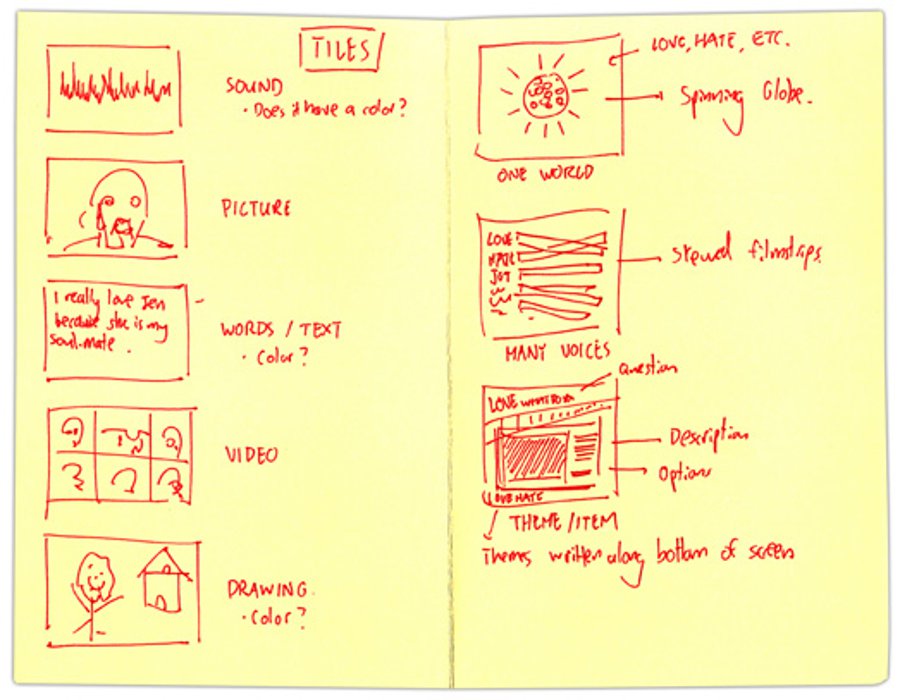 TILES
SOUND
· Does it have a color?
PICTURE
I really love Jen
because she is my
soul-mate.
WORDS / TEXT
· Color?
VIDEO
DRAWING.
· Color?
LOVE, HATE, ETC.
Spinning Globe.
ONE WORLD
LOVE
HATE
JOY
filmstrips
MANY VOICES
Question
LOVE
Description
Options
LOVE HATE
THEME/ITEM
Themes written along bottom of screen